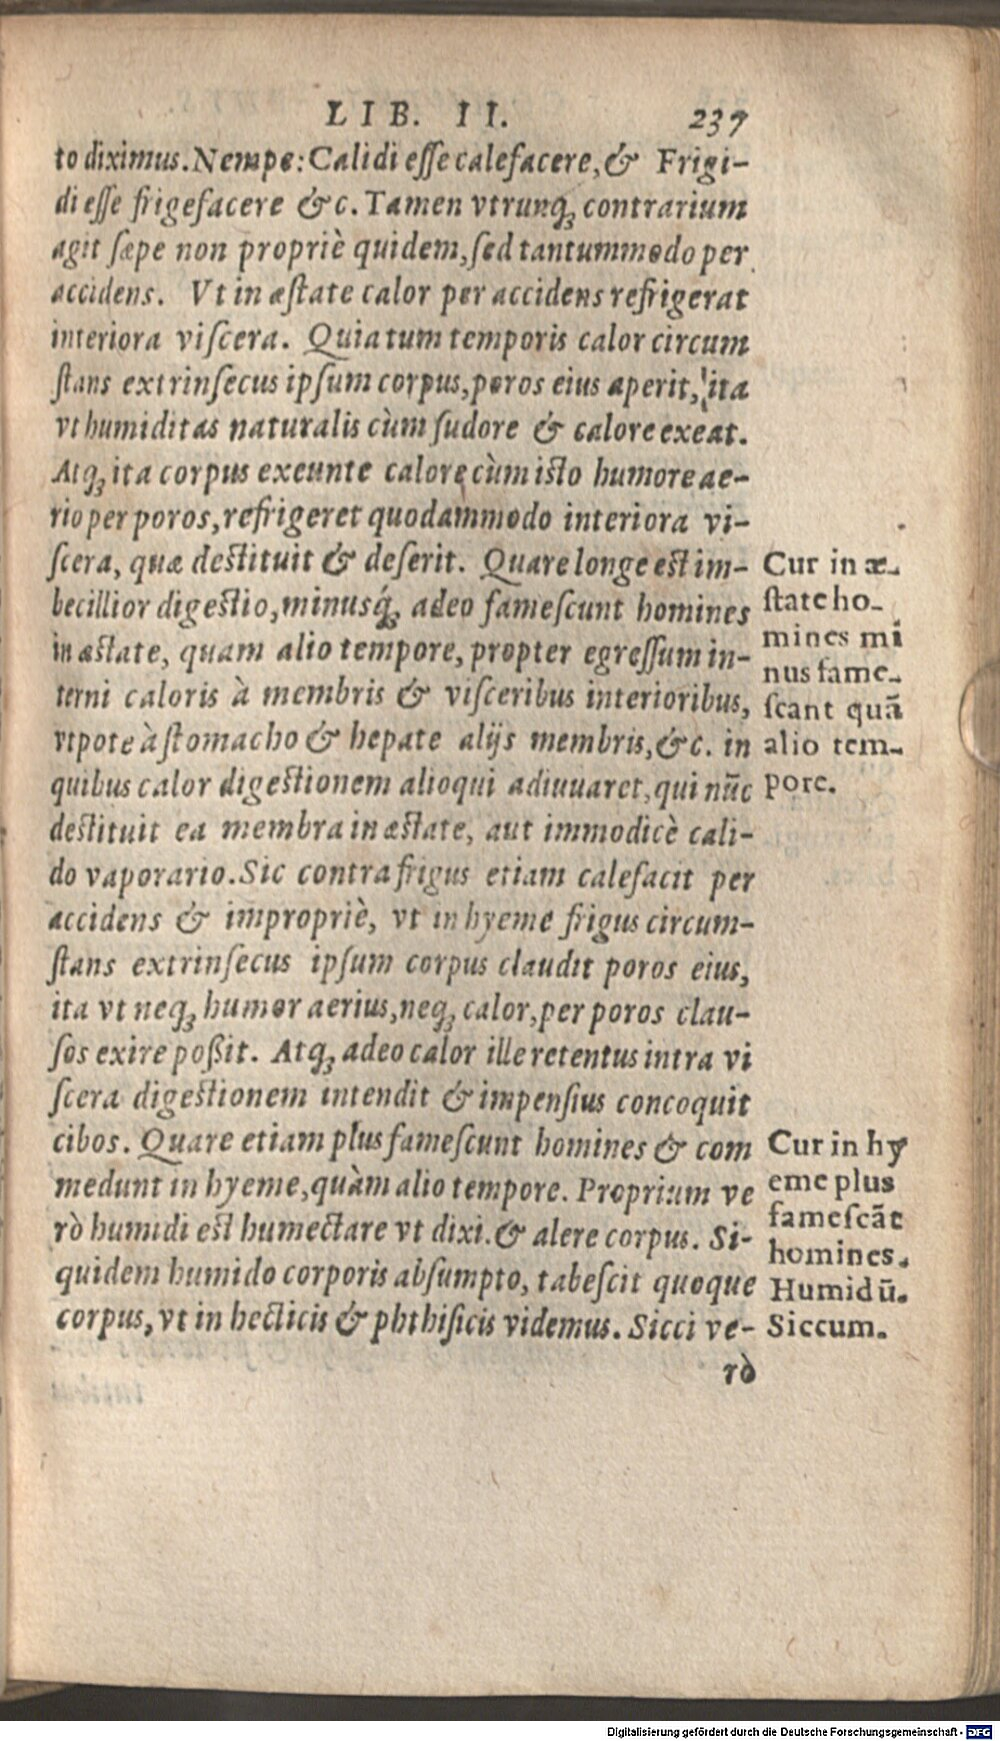 LIB. II. 237
to diximus. Nempe: Calidi esse calefacere, & Frigi-
di esse frigefacere &c. Tamen vtrunq; contrarium
agit sæpe non propriè quidem, sed tantummodo per
accidens. Vt in æstate calor per accidens refrigerat
interiora viscera. Quia tum temporis calor circum
stans extrinsecus ipsum corpus, poros eius aperit, ita
vt humiditas naturalis cùm sudore & calore exeat.
Atq; ita corpus exeunte calore cùm isto humore ae-
rio per poros, refrigeret quodammodo interiora vi-
scera, quæ destituit & deserit. Quare longe est im-
becillior digestio, minusq́; adeo famescunt homines
in æstate, quam alio tempore, propter egressum in-
terni caloris à membris & visceribus interioribus,
vtpote à stomacho & hepate alijs membris, &c. in
quibus calor digestionem alioqui adiuuaret, qui nūc
destituit ea membra in æstate, aut immodicè cali-
do vaporario. Sic contra frigus etiam calefacit per
accidens & impropriè, vt in hyeme frigus circum-
stans extrinsecus ipsum corpus claudit poros eius,
ita vt neq; humor aerius, neq; calor, per poros clau-
sos exire poßit. Atq; adeo calor ille retentus intra vi
scera digestionem intendit & impensius concoquit
cibos. Quare etiam plus famescunt homines & com
medunt in hyeme, quàm alio tempore. Proprium ve
rò humidi est humectare vt dixi. & alere corpus. Si-
quidem humido corporis absumpto, tabescit quoque
corpus, vt in hecticis & phthisicis videmus. Sicci ve-
rò
Cur in æ-
state ho-
mines mi
nus fame-
scant quā
alio tem-
pore.
Cur in hy
eme plus
famescāt
homines.
Humidū.
Siccum.
Digitalisierung gefördert durch die Deutsche Forschungsgemeinschaft - DFG